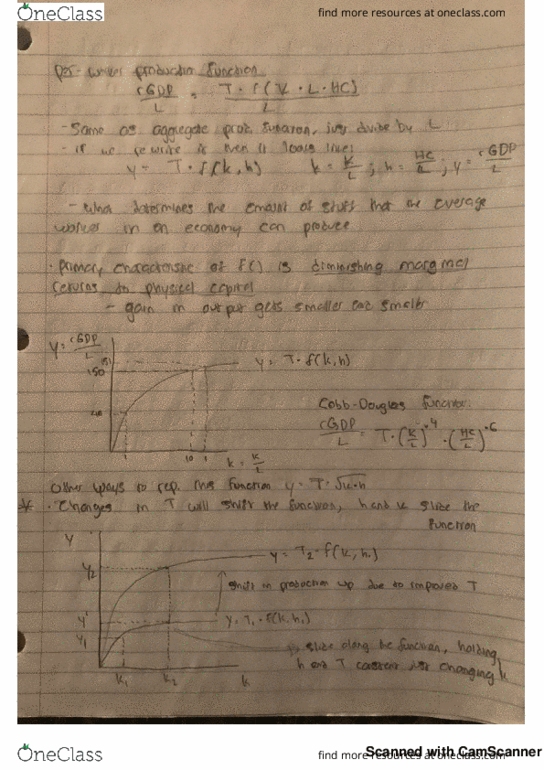 OneClass
find more resources at oneclass.com
Per-worker production function
rGDP/L = T · f(K · L · HC)/L
- Same as aggregate prod. function, just divide by L
- if we rewrite it then it looks like:
y = T · f(k, h) k = K/L ; h = HC/L ; y = rGDP/L
- What determines the amount of stuff that the average
worker in an economy can produce
· Primary characteristic of f() is diminishing marginal
returns to physical capital
- gain in output gets smaller and smaller
y = rGDP/L
150
40
y = T · f(k, h)
1 10
k = K/L
Cobb-Douglas function:
rGDP/L = T · (K/L)^.4 · (HC/L)^.6
Other ways to rep. this function y = T · √k·h
* · Changes in T will shift the function, h and k slide the
function
y
y = T2 · f(k, h1)
y2
shift in production up due to improved T
y'
y = T1 · f(k, h1)
y1
slide along the function, holding
h and T constant just changing k
k1 k2 k
OneClass
find more resources at oneclass.com
Scanned with CamScanner